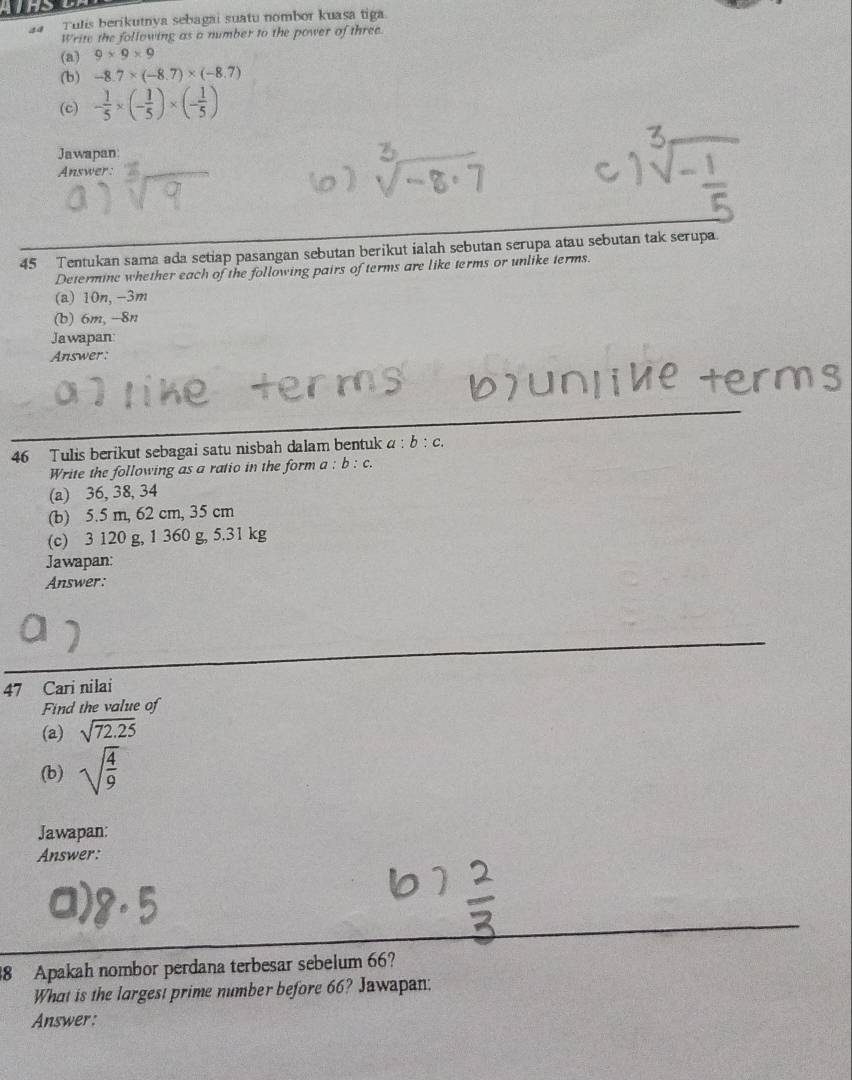 44 Tulis berikutnya sebagai suatu nombor kuasa tiga.
Write the following as a number to the power of three.
(a) 9 × 9 × 9
(b) −8.7 × (−8.7) × (−8.7)
(c) −1/5 × (−1/5) × (−1/5)
Jawapan:
Answer:
a) ∛9 b) ∛−8.7 c) ∛−1/5
45 Tentukan sama ada setiap pasangan sebutan berikut ialah sebutan serupa atau sebutan tak serupa.
Determine whether each of the following pairs of terms are like terms or unlike terms.
(a) 10n, −3m
(b) 6m, −8n
Jawapan:
Answer:
a) like terms b) unlike terms
46 Tulis berikut sebagai satu nisbah dalam bentuk a : b : c.
Write the following as a ratio in the form a : b : c.
(a) 36, 38, 34
(b) 5.5 m, 62 cm, 35 cm
(c) 3 120 g, 1 360 g, 5.31 kg
Jawapan:
Answer:
a)
47 Cari nilai
Find the value of
(a) √72.25
(b) √4/9
Jawapan:
Answer:
a) 8.5 b) 2/3
8 Apakah nombor perdana terbesar sebelum 66?
What is the largest prime number before 66? Jawapan:
Answer: